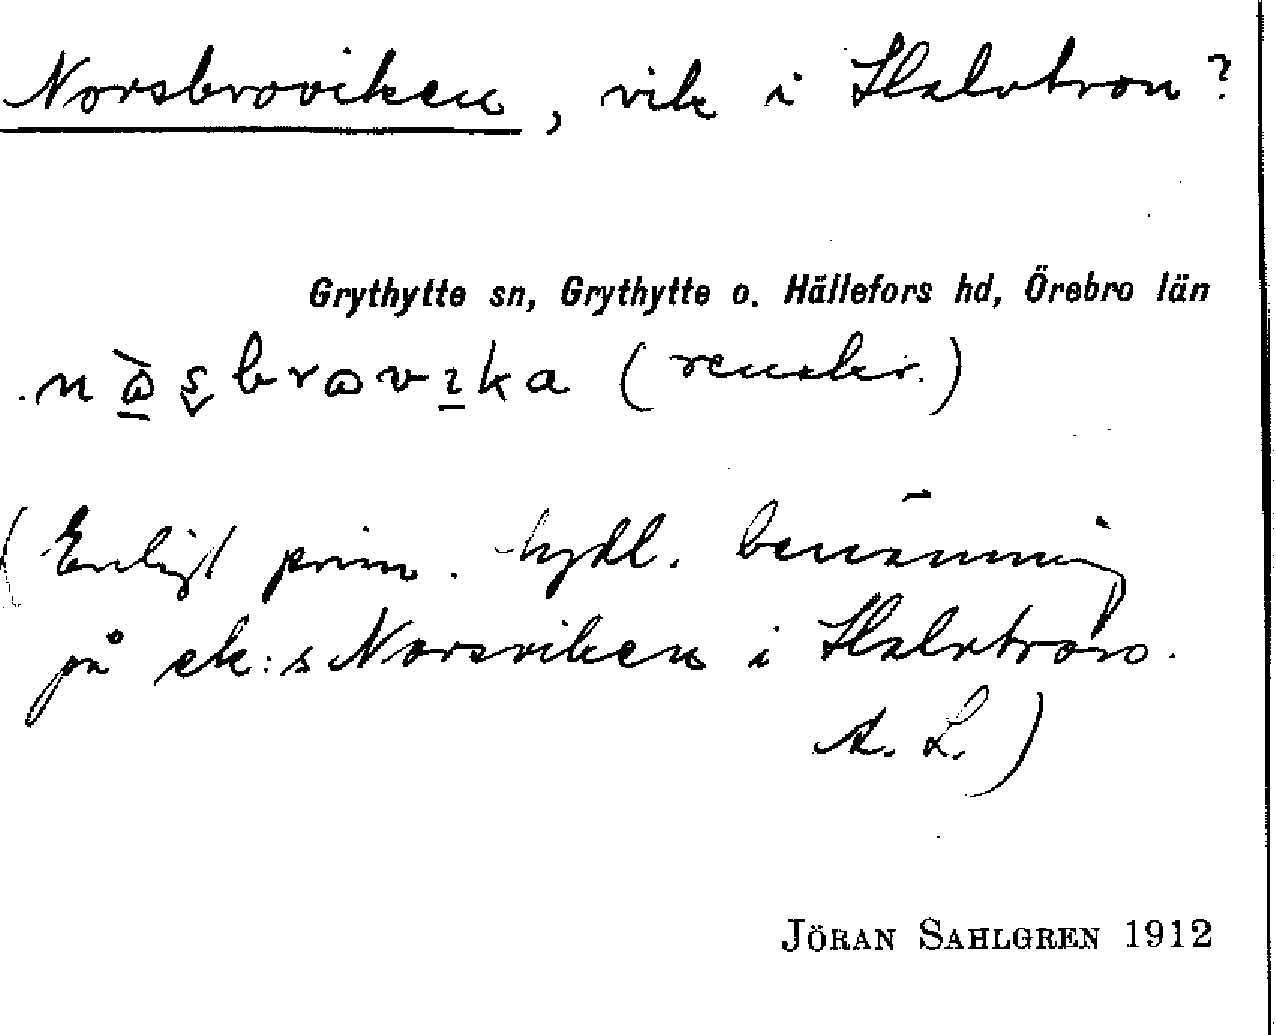 Norsbroviken, vik i Halvtron?
Grythytte sn, Grythytte o. Hällefors hd, Örebro län
(renskr.)
(Enligt prim. tydl. benämning
på ek:s Norsviken i Halvtron.
A. L.)
JÖRAN SAHLGREN 1912